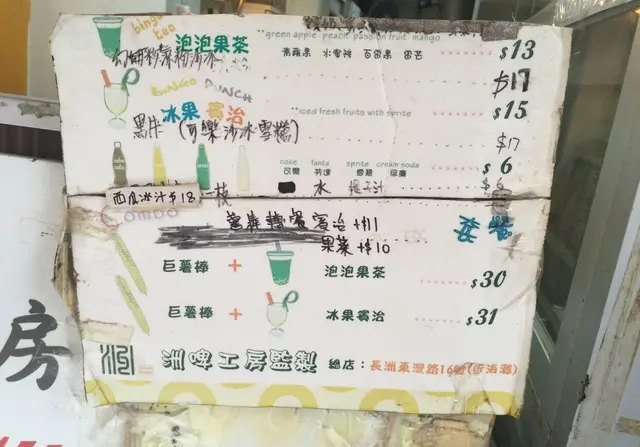 bingo tea
泡泡果茶
green apple peach passion fruit mango
青蘋果 水蜜桃 百香果 芒果
$13
$17
BINGO PUNCH
冰果賓治
iced fresh fruits with sprite
$15
黑牛 (可樂沙冰雪糕)
$17
coke fanta sprite cream soda
可樂 芬達 雪碧 忌廉
$6
水 提子汁
西瓜冰汁$18
combo
賓治+$11
果茶+$10
巨薯棒 + 泡泡果茶 $30
巨薯棒 + 冰果賓治 $31
洲啤工房監製 總店:長洲東灣路16號(近海灘)
房